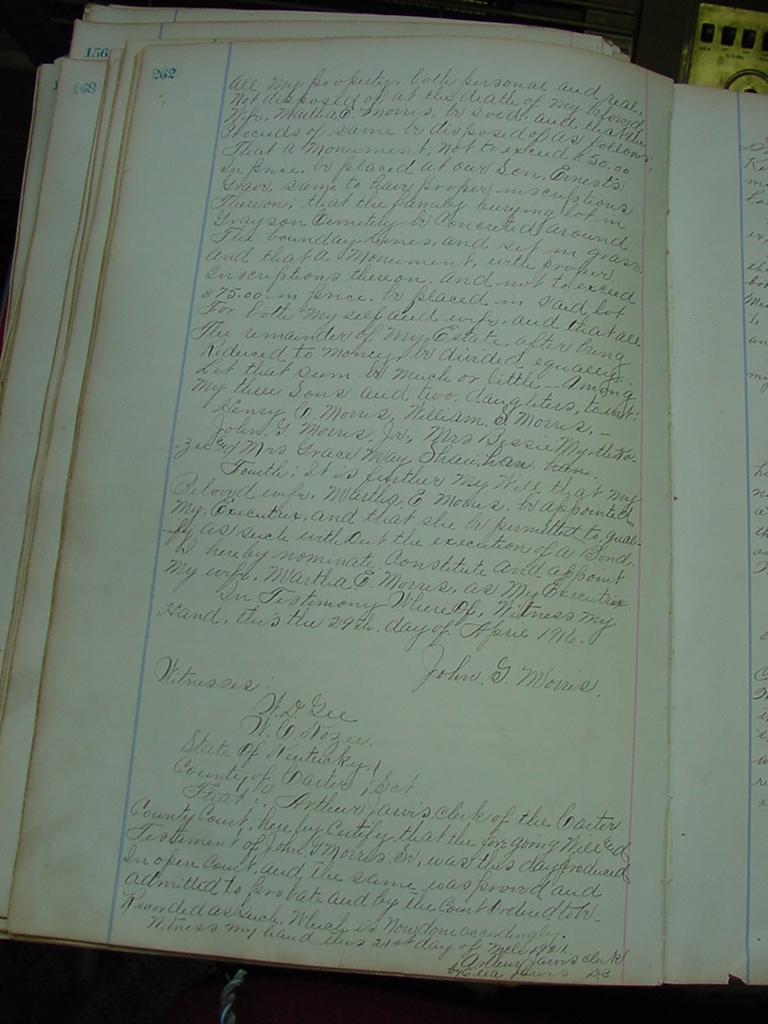 156
168
262
All my property, both personal and real,
Not disposed of at the death of my beloved
Wife, Martha E. Morris, be sold, and that the
Proceeds of same be disposed of as follows:
That a Monument, not to exceed $50.00
In price, be placed at our Son, Ernest's
Grave, same to have proper inscriptions
Thereon; that the family burying lot in
Grayson Cemetery be Concreted around
The boundary lines, and set in grass
and that a Monument, with proper
Inscriptions thereon, and not to exceed
$75.00 in price, be placed in said lot
For both myself and wife, and that all
The remainder of my Estate, after being
Reduced to money, be divided, equally-
Let that sum be much or little -- Among
My three Sons and two daughters, to wit:
Henry C Morris, William S Morris, -
John. G. Morris, Jr., Mrs Bessie Myrtle No-
-zee and Mrs Grace May Shawhan
Fourth: It is further My Will that my
Beloved wife, Martha. E Morris, be appointed
My Executrix, and that she be permitted to qual-
-fy as such without the execution of a Bond,
I hereby nominate, Constitute and appoint
My wife, Martha. E. Morris, as My Executrix
In Testimony Whereof, Witness my
Hand, this the 29th. day of April 1916.
John. G. Morris.
Witnesses:
W. D. Gee
W. C. Nozee.
State of Kentucky,
County of Carter, Sct.
That I, Arthur Jarvis clerk of the Carter
County Court, hereby Certify that the foregoing Will and
Testement of John. G Morris, Sr, was this day produced
In open Court, and the same was proved and
admitted to probate and by the Court ordered to be-
Recorded as such. Which is Now done accordingly.
Witness my hand this 21st day of 1921.
Arthur Jarvis clerk
by Ella Jarvis D.C